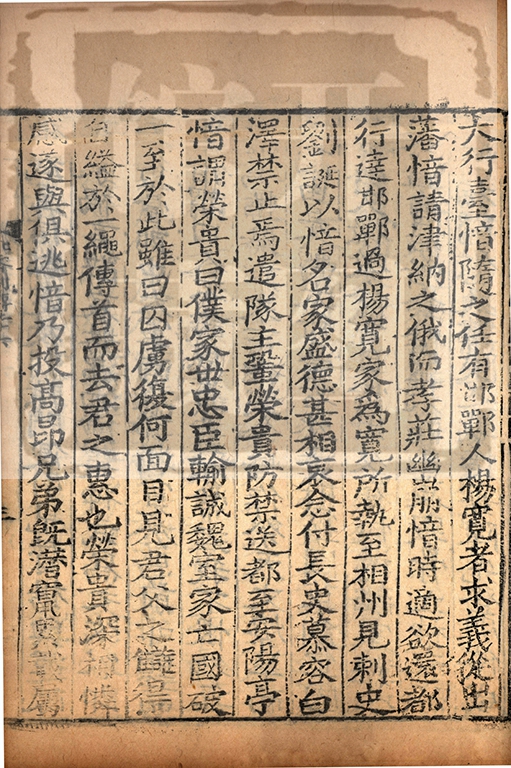 大行臺愔隨之任有邯鄲人楊寬者求義從出
藩愔請津納之俄而孝莊幽崩愔時適欲還都
行達邯鄲過楊寬家為寬所執至相州見刺史
劉誕以愔名家盛德甚相哀念付長史慕容白
澤禁止焉遣隊主鞏榮貴防禁送都至安陽亭
愔謂榮貴曰僕家世忠臣輸誠魏室家亡國破
一至於此雖曰囚虜復何面目見君父之讎得
自縊於一繩傳首而去君之惠也榮貴深相憐
感遂與俱逃愔乃投高昂兄弟旣潛竄累載屬